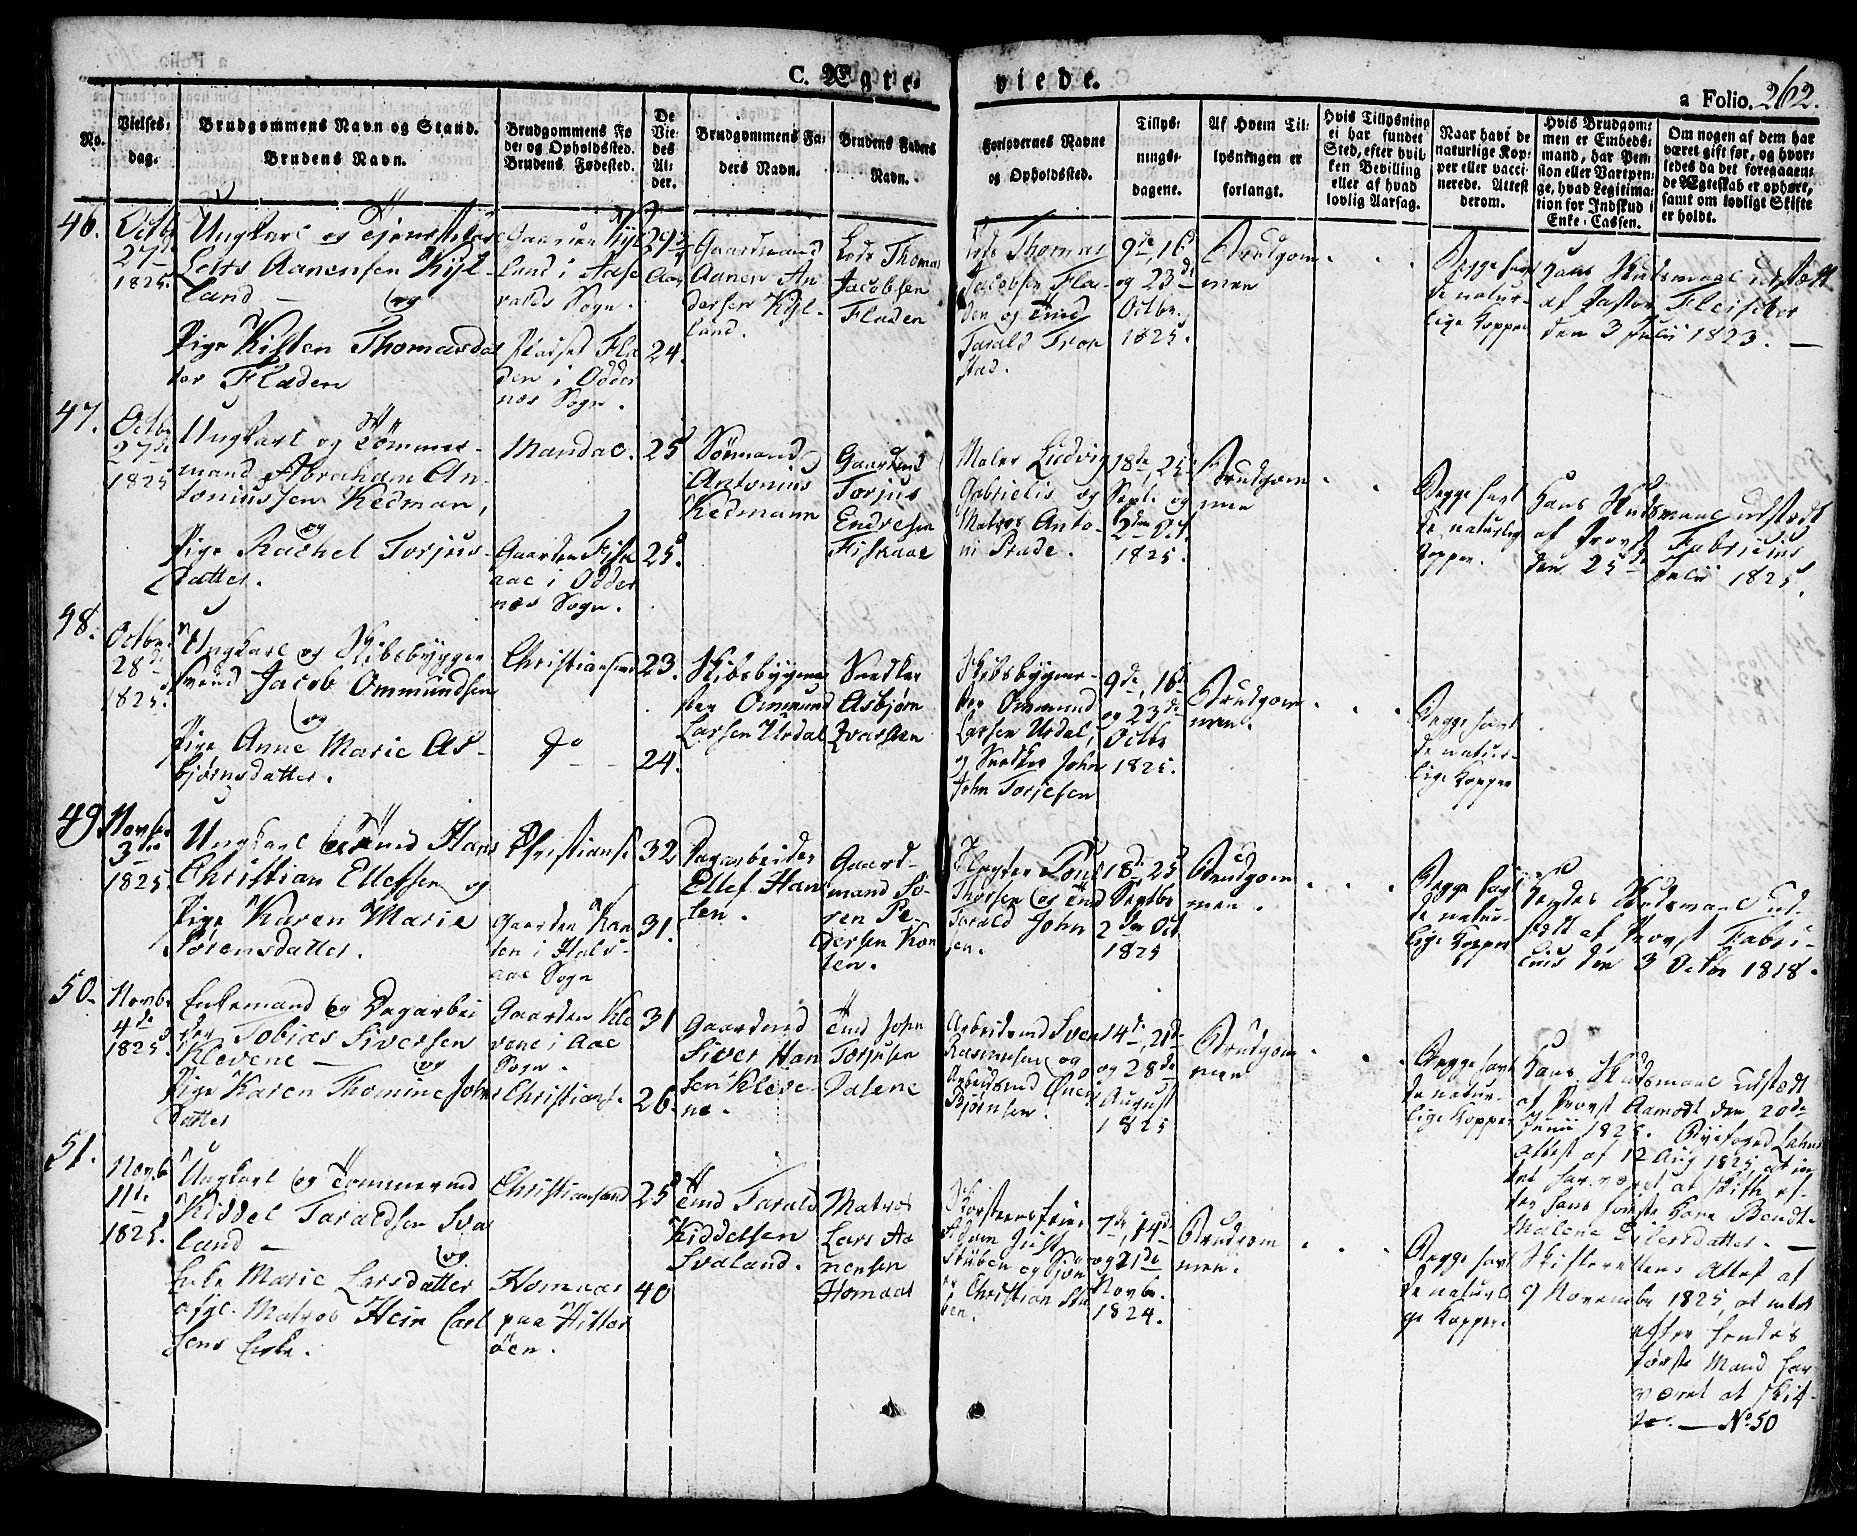 C. Ægte-
viede.
a Folio. 262.
No.
Vielses-
dag.
Brudgommens Navn og Stand.
Brudens Navn.
Brudgommens Fø
de- og Opholdssted.
Brudens Fødested.
De
Vie-
des
Al-
der.
Brudgommens Fa-
ders Navn.
Brudens Faders
Navn.
Forlovernes Navne
og Opholdssted.
Tillys-
nings-
dagene.
Af Hvem Til-
lysningen er
forlangt.
Hvis Tillysning
ei har fundet
Sted, efter hvil-
ken Bevilling
eller af hvad
lovlig Aarsag.
Naar havt de
naturlige Kop-
per eller vacci-
nerede. Attest
derom.
Hvis Brudgom-
men er Embeds-
mand, har Pen-
sion eller Vartpen-
ge, hvad Legitima-
tion for Indskud i
Enke-Cassen.
Om nogen af dem har
været gift før, og hvor-
ledes da det foregaaen-
de Ægteskab er ophørt,
samt om lovligt Skifte
er holdt.
46.
Octbr
27de
1825.
Ungkarl og Tjenestekarl
Aanensen Kyl-
land - og
Pige Kisten Thomasdat
ter Fladen
Gaarden Kyl
land i
Sogn.
Pladset Fla
den i Odder
nes Sogn.
24.
Gaardmand
Aanen An
dersen Kyl-
land.
Lods Thomas
Jacobsen
Fladen
Lods Thomas
Jacobsen Fla-
den og Tmd
Tarald Tron
stad.
9de, 16de
og 23de
Octbr.
1825.
Brudgom
men
Begge havt
de natur-
lige Kopper
Hans Skudsmaal udstædt
af Pastor Fleischer
den 3 Julii 1823. —
47.
Octbr
27de
1825
Ungkarl og Tömmer-
mand Abraham An-
toniussen Kedman,
og
Pige Rachel Torjus-
datter.
Mandal.
Gaarden Fisk
aae i Odder
nes Sogn.
25
25.
Antonius
Kedmann
Gaardmd
Torjus
Endresen
Fiskaae
Maler Ludvig
Gabrielis og
Matros Anto-
ni
18de, 25de
Septb. og
2den Oct
1825.
Brudgom
men
Begge havt
de naturlig
Kopper.
Hans Skudsmaal udstædt
af Provst Fabricius
den 25de Julii 1825.
48.
Octbr.
28de
1825.
Ungkarl og Skibsbygger
svend Jacob Ommundsen
og
Pige Anne Marie As-
bjørnsdatter.
Christiansand
do
23.
24.
Skibsbygme-
ster Ommund
Larsen Urdal
Snedker
Asbjørn
Ivarsen
Skibsbygme-
ster Ommund
Larsen Urdal,
og Snedker John
John Torjesen
9de, 16de
og 23de
Octbr
1825.
Brudgom
men.
Begge havt
de natur-
lige Kopper
49.
Novbr
3die
1825.
Ungkarl og Tmd Hans
Christian Ellefsen og
Pige Karen Marie
Sørensdatter.
Christians.
Gaarden Kan
ten i Hals-
aae Sogn
32
31.
Dagarbeider
Ellef Han
sen.
Gaard-
mand Sø-
ren Pe-
dersen Kan
ten.
Thorsen og Tmd
Tarald John
sen.
18de 25
Septbr
2den Oct
1825
Brudgom
men.
Begge havt
de natur-
lige Kopper
Hendes Skudsmaal ud-
stædt af Provst Fabri-
cius den 3 Octbr 1818.
50.
Novbr.
4de
1825.
Enkemand og Dagarbei
der Tobias Siversen
Klevene — og
Pige Karen Thomine Johns
datter
Gaarden Kle
vene i Aae
Sogn.
Christians.
31
26.
Gaardmd
Siver Han
sen Kleve-
ne.
Tmd John
Torjusen
Dalene
Arbeidsmd Sven
Rasmusen og
Arbeidsmd
Bjørnsen.
14de, 21de
og 28de
August
1825
Brudgom
men
Begge havt
de natur-
lige Kopper
Hans Skudsmaal udstædt
af Provst Aamodt den 20de
Junii 1825. Byefoged
Attest af 12 Aug 1825, at in
tet har været at skifte ef-
ter hans første Kone Bendt-
Malene Eilertsdatter. —
51.
Novbr
11te
1825.
Ungkarl og Tömmermd
Kiddel Taraldsen Sva
land —
og
Enke Marie Larsdatter
afg. Matros Hein Carl
sens Enke.
Christiansand
Homaas
paa Hitter
öen.
25
40
Tmd Tarald
Kiddelsen
Svaland.
Matros
Lars Aa
nensen
Homaas
Skorsteensfeier
Adam Just
Stüben og
Christian Stü
ben.
7de, 14de
og 21de
Novbr.
1824.
Brudgom
men.
Begge havt
de naturli
ge Kopper.
Skifterettens Attest af
9 November 1825, at intet
efter hendes
første Mand har
været at skif-
te. — No 50